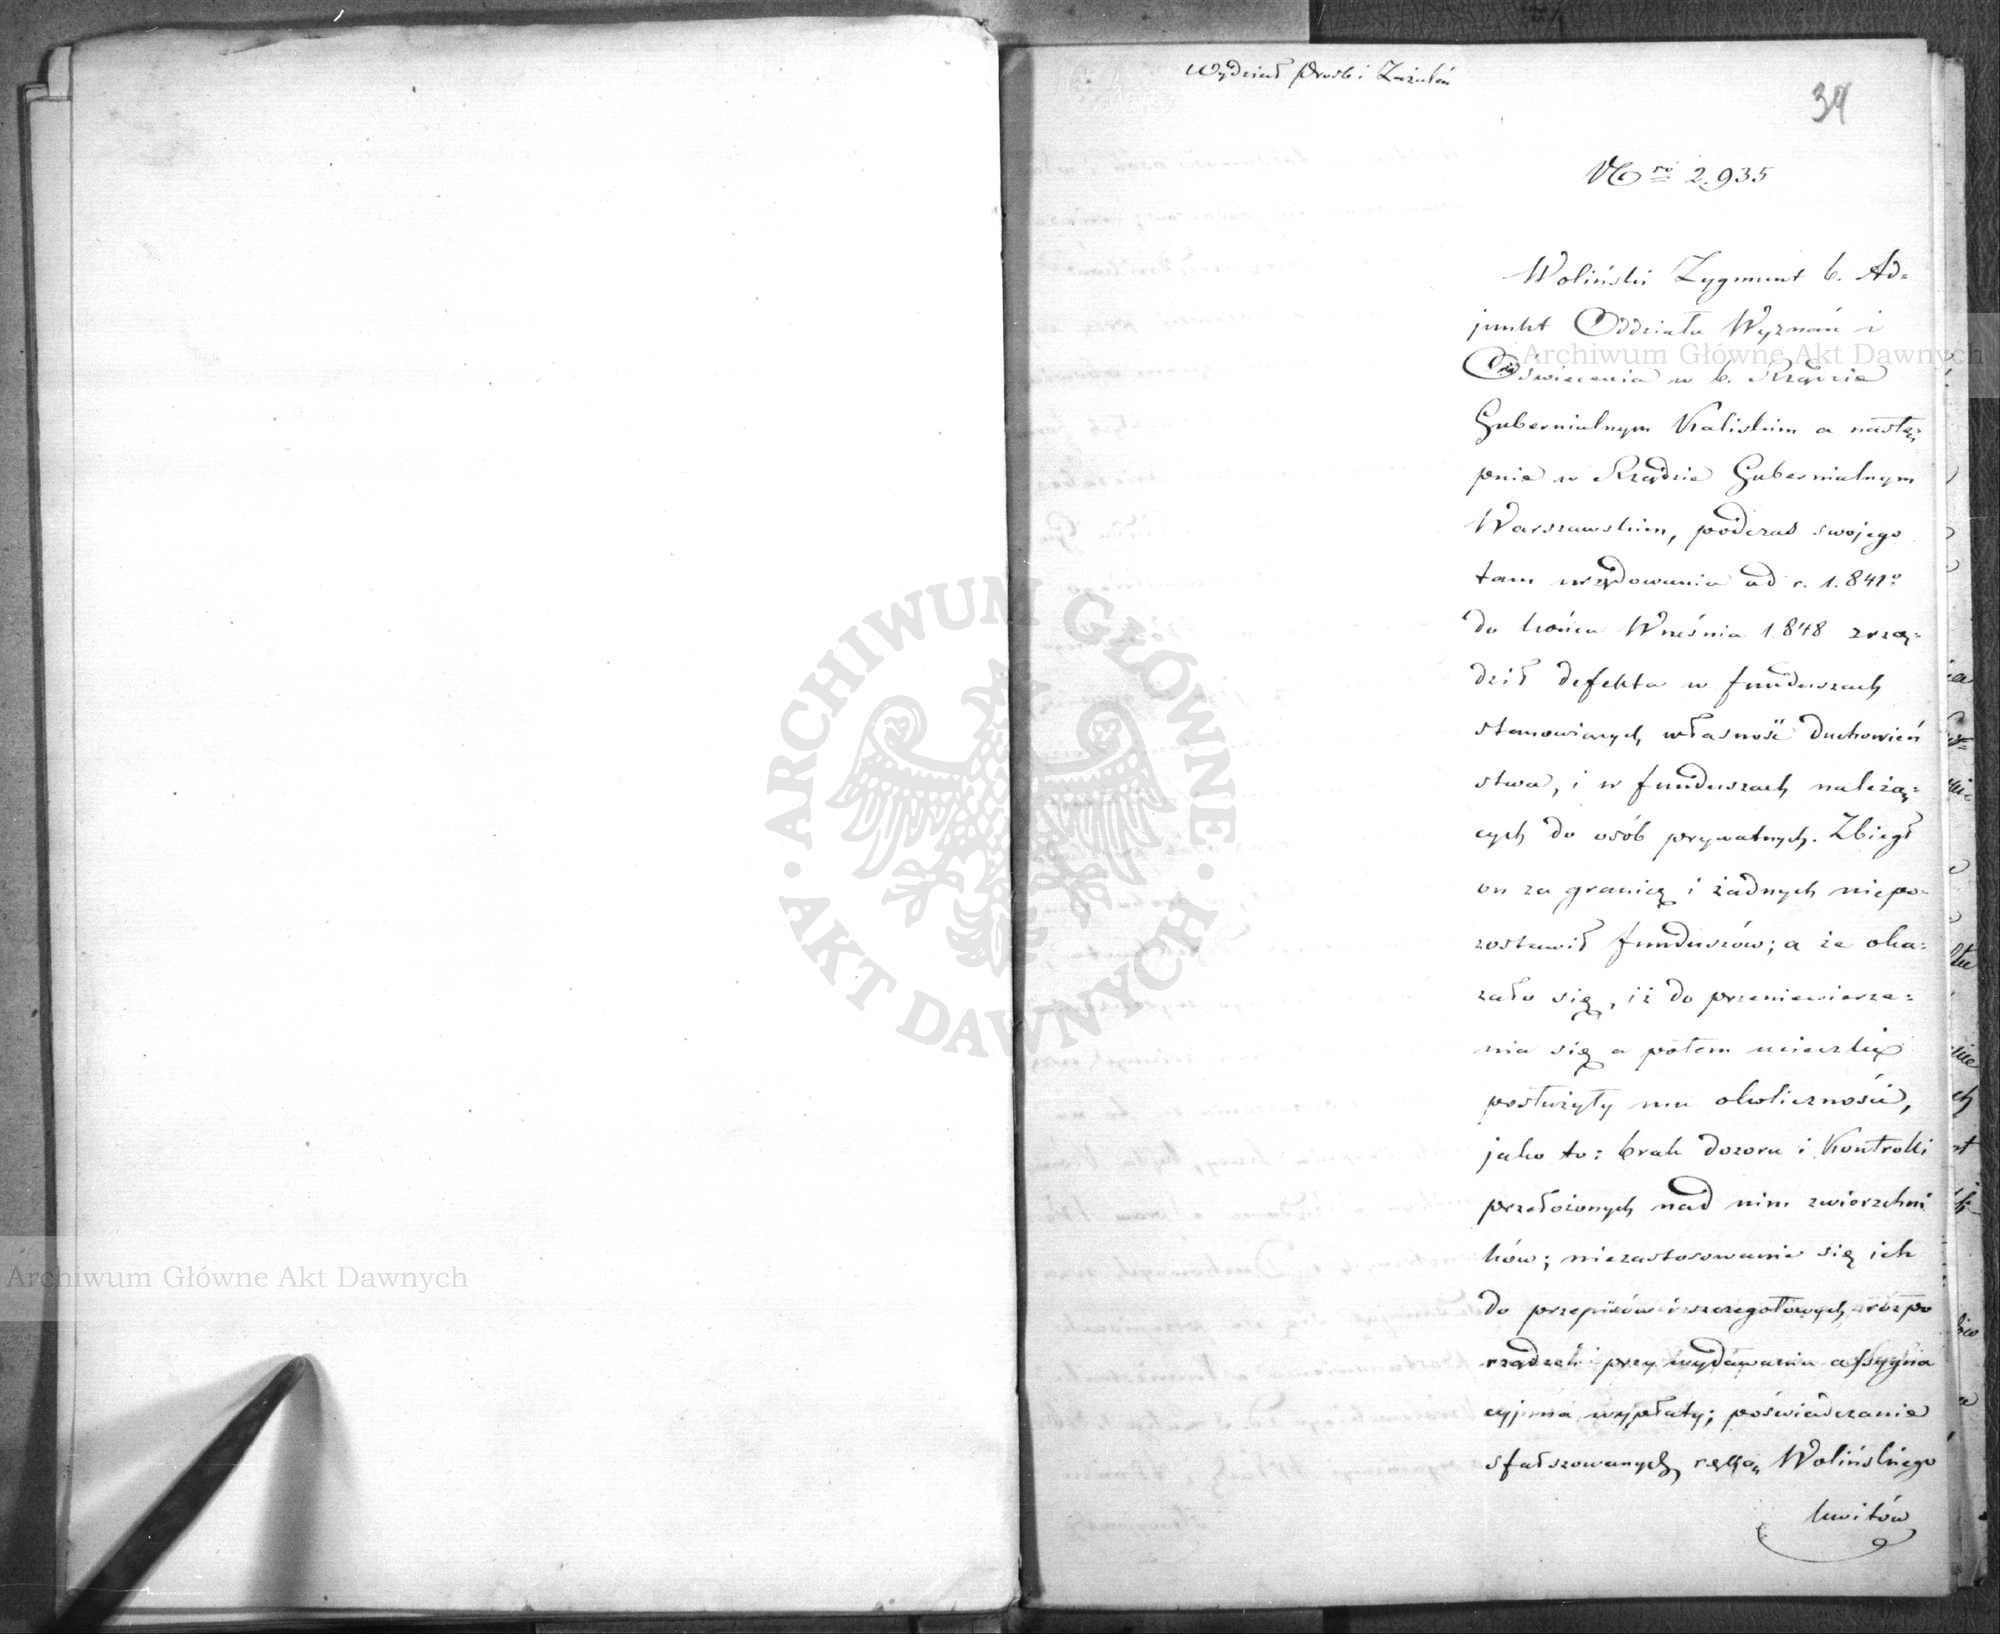 Wydział Prośb i Zażaleń
34
Nro 2.935
Woliński Zygmunt b. Ad=
junkt Oddziału Wyznań i
Oświecenia w b. Rządzie
Gubernialnym Kaliskim a nastę=
pnie w Rządzie Gubernialnym
Warszawskim, podczas swojego
tam urzędowania od r. 1.841º
do końca Września 1.848 zrzą=
dził defekta w funduszach
stanowiących własność Duchowień
stwa, i w funduszach należą=
cych do osób prywatnych. Zbiegł
on za granicę i żadnych niepo=
zostawił funduszów; a że oka=
zało się, iż do przeniewierze=
nia się a potem ucieczki
posłużyły mu okoliczności,
jako to: brak dozoru i Kontrolli
przełożonych nad nim zwierzchni
ków; niezastosowanie się ich
do przepisów i szczegółowych rozpo
rządzeń przy wydawaniu assygna
cyj na wypłaty; poświadczanie
sfałszowanych ręką Wolińskiego
kwitów
Archiwum Główne Akt Dawnych
Archiwum Główne Akt Dawnych
ARCHIWUM GŁÓWNE
AKT DAWNYCH